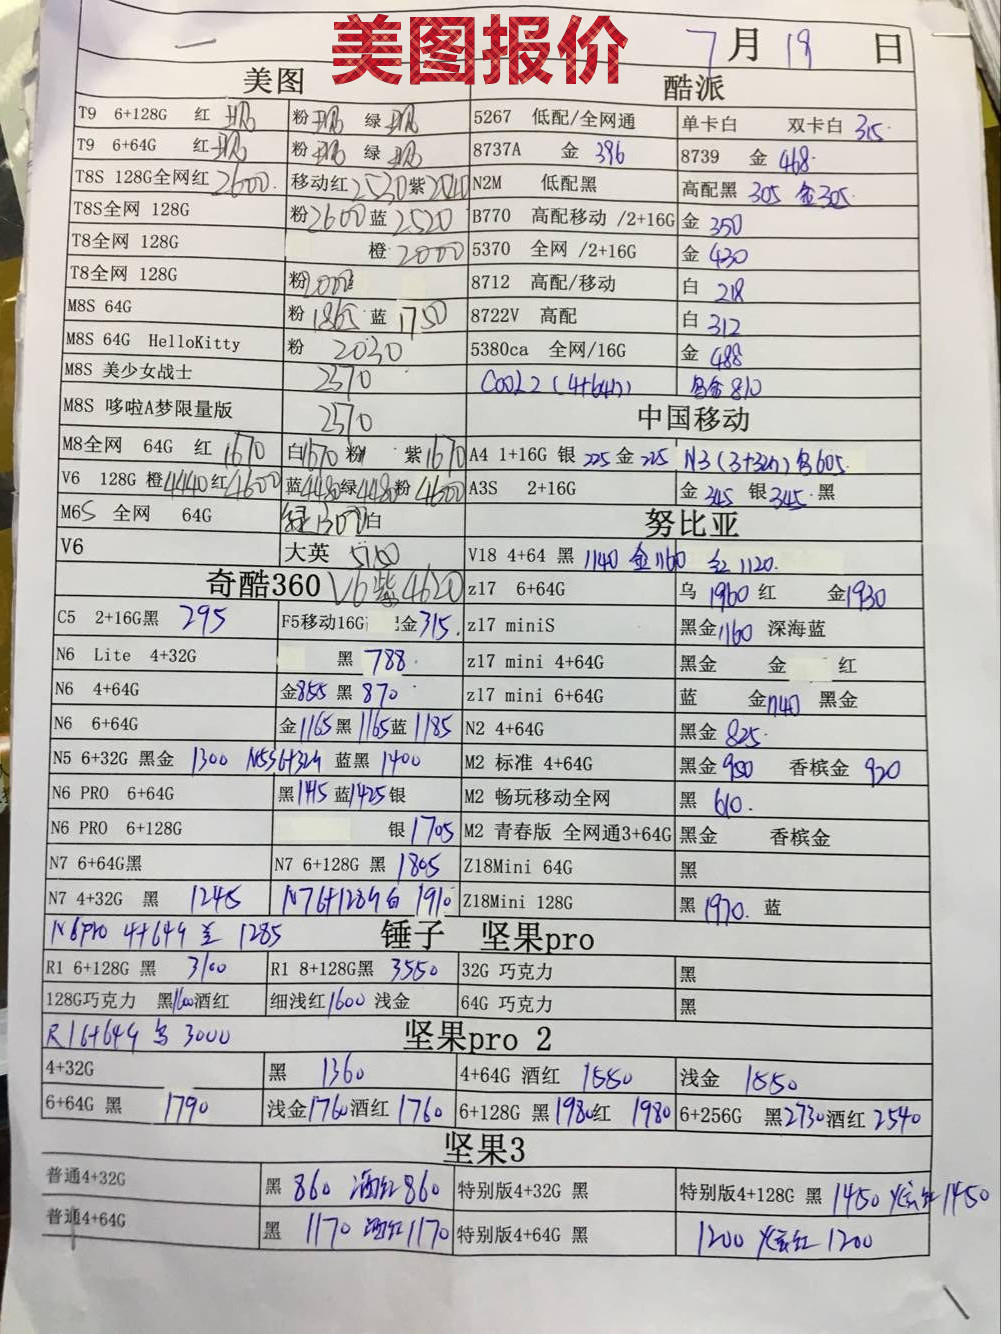 美图报价
7月19日
美图 酷派
T9 6+128G 红 粉 绿 5267 低配/全网通 单卡白 双卡白 315
T9 6+64G 红 粉 绿 8737A 金 396 8739 金 468
T8S 128G全网红 2600 移动红 2520 紫 2040 N2M 低配黑 高配黑 305 金 305
T8S全网 128G 粉 2600 蓝 2520 B770 高配移动 /2+16G 金 350
T8全网 128G 橙 2000 5370 全网 /2+16G 金 430
T8全网 128G 粉 8712 高配/移动 白 218
M8S 64G 粉 1865 蓝 1750 8722V 高配 白 312
M8S 64G HelloKitty 粉 2030 5380ca 全网/16G 金 488
M8S 美少女战士 2370 COOL2 (4+64G) 810
M8S 哆啦A梦限量版 2370 中国移动
M8全网 64G 红 1670 白 1670 粉 紫 1670 A4 1+16G 银 225 金 225 N3 (3+32G) 605
V6 128G 橙 4440 红 4600 蓝 4480 绿 4480 粉 4600 A3S 2+16G 金 345 银 345 黑
M6S 全网 64G 绿 1300 白 努比亚
V6 大英 5150 V18 4+64 黑 1140 金 1160 红 1120
奇酷360 V6紫4620 z17 6+64G 乌 1960 红 金 1930
C5 2+16G黑 295 F5移动16G 金 315 z17 miniS 黑金 1160 深海蓝
N6 Lite 4+32G 黑 788 z17 mini 4+64G 黑金 金 红
N6 4+64G 金 855 黑 870 z17 mini 6+64G 蓝 金 1140 黑金
N6 6+64G 金 1165 黑 1165 蓝 1185 N2 4+64G 黑金 825
N5 6+32G 黑金 1300 N5S6+32G 蓝黑 1400 M2 标准 4+64G 黑金 950 香槟金 920
N6 PRO 6+64G 黑 1415 蓝 1425 银 M2 畅玩移动全网 黑 610
N6 PRO 6+128G 银 1705 M2 青春版 全网通3+64G 黑金 香槟金
N7 6+64G黑 N7 6+128G 黑 1805 Z18Mini 64G 黑
N7 4+32G 黑 1245 N76+128G白 1910 Z18Mini 128G 黑 1970 蓝
N6Pro 4+64G 1285 锤子 坚果pro
R1 6+128G 黑 3100 R1 8+128G黑 3550 32G 巧克力 黑
128G巧克力 黑 1600 酒红 细浅红 1600 浅金 64G 巧克力 黑
R1 6+64G 3000 坚果pro 2
4+32G 黑 1360 4+64G 酒红 1550 浅金 1550
6+64G 黑 1790 浅金 1760 酒红 1760 6+128G 黑 1980 红 1980 6+256G 黑 2730 酒红 2540
坚果3
普通4+32G 黑 860 酒红 860 特别版4+32G 黑 特别版4+128G 黑 1450 炫红 1450
普通4+64G 黑 1170 酒红 1170 特别版4+64G 黑 1200 炫红 1200